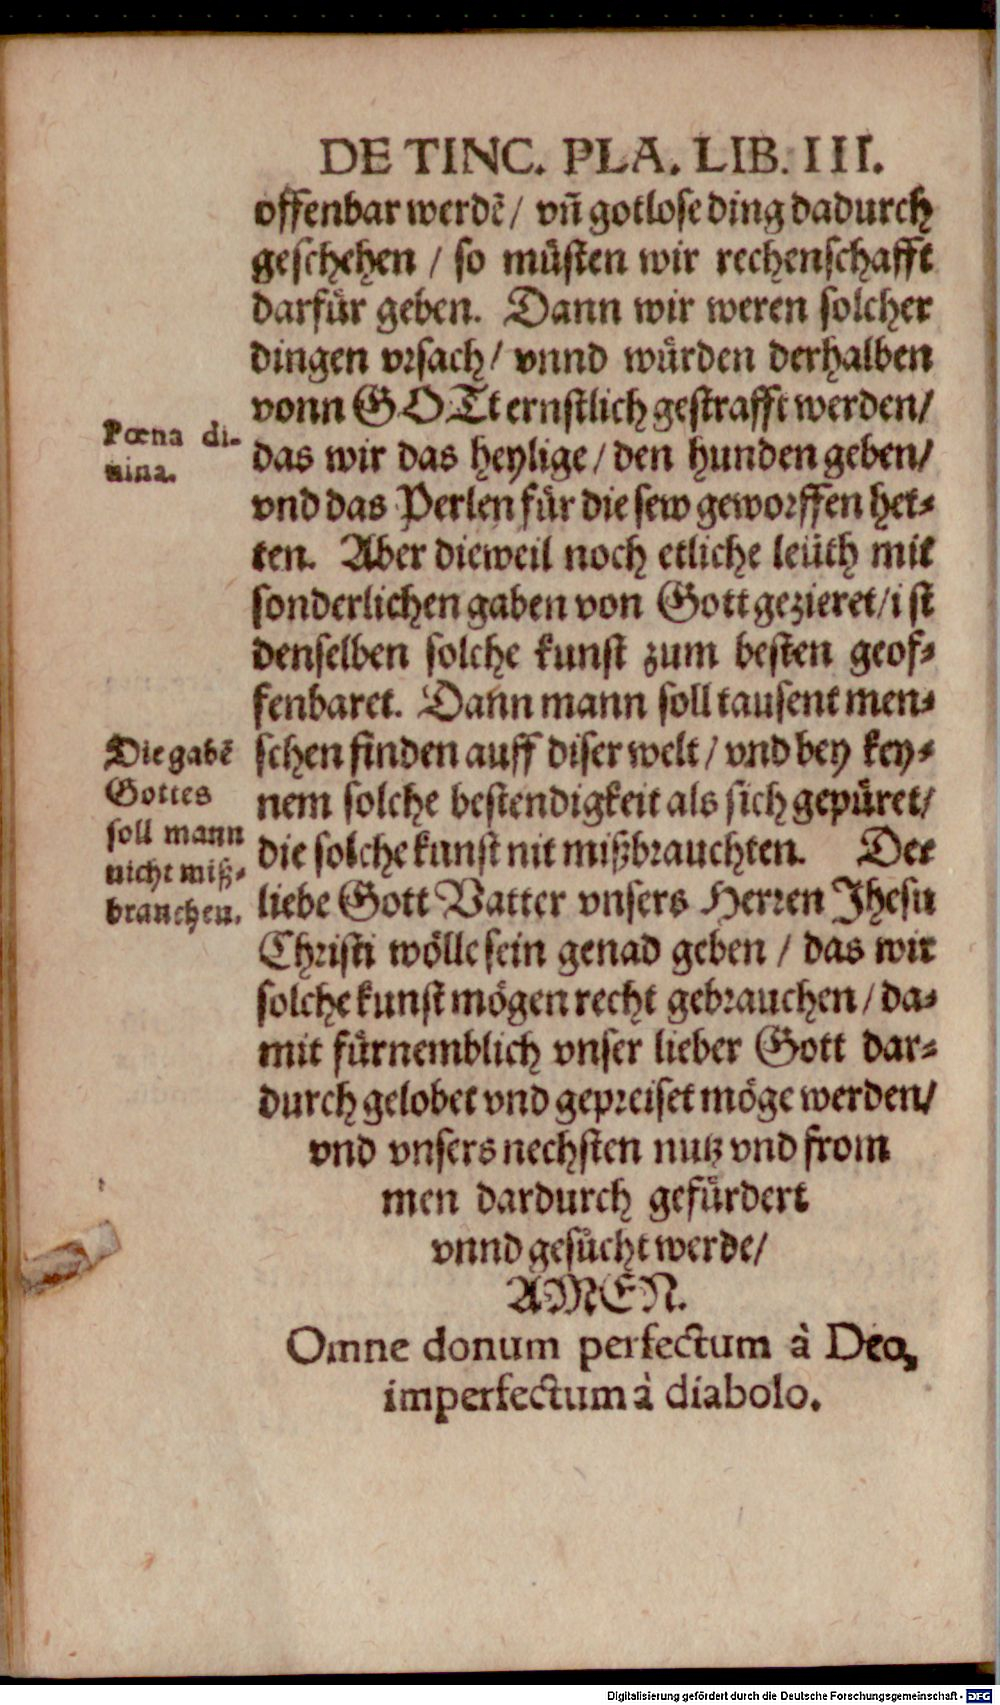 DE TINC. PLA. LIB. III.
offenbar werdẽ / vñ gotlose ding dadurch
geschehen / so müsten wir rechenschafft
darfür geben. Dann wir weren solcher
dingen vrsach / vnnd würden derhalben
vonn GOTt ernstlich gestrafft werden /
Pœna di-
uina.
das wir das heylige / den hunden geben /
vnd das Perlen für die sew geworffen het-
ten. Aber dieweil noch etliche leüth mit
sonderlichen gaben von Gott gezieret / ist
denselben solche kunst zum besten geof-
fenbaret. Dann mann soll tausent men-
Die gabẽ
Gottes
soll mann
nicht miß-
brauchen.
schen finden auff diser welt / vnd bey key-
nem solche bestendigkeit als sich gepüret /
die solche kunst nit mißbrauchten. Der
liebe Gott Vatter vnsers Herren Jhesu
Christi wölle sein genad geben / das wir
solche kunst mögen recht gebrauchen / da-
mit fürnemblich vnser lieber Gott dar-
durch gelobet vnd gepreiset möge werden /
vnd vnsers nechsten nutz vnd from
men dardurch gefürdert
vnnd gesücht werde /
AMEN.
Omne donum perfectum à Deo,
imperfectum à diabolo.
Digitalisierung gefördert durch die Deutsche Forschungsgemeinschaft - DFG